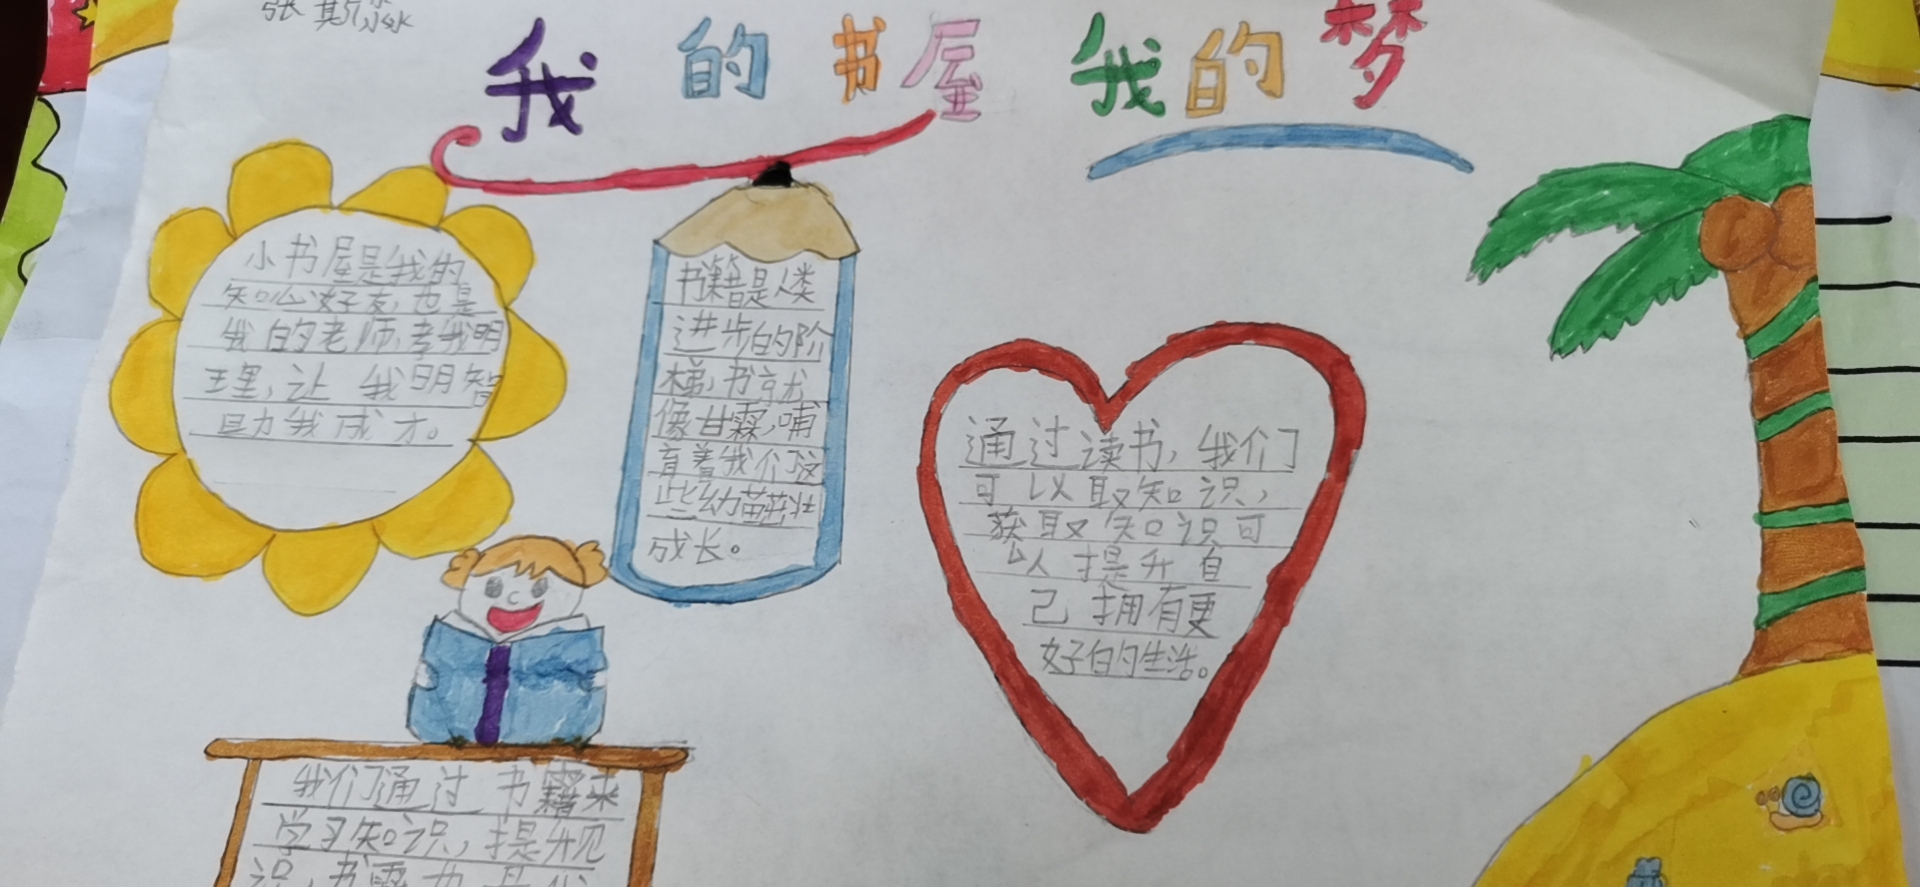 我的书屋我的梦
小书屋是我的
知心好友,也是
我的老师,孝我明
王里,让我明智
且力我成才。
书籍是人类
进步的阶
梯,书就
像甘霖,哺
育着我们这
些幼苗茁壮
成长。
通过读书,我们
可以取知识,
获取知识可
以提升自
己拥有更
好的生活。
我们通过书籍来
学习知识,提升见
识,书